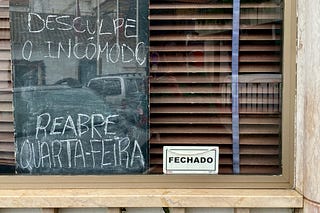 DESCULPE
O INCÓMODO
REABRE
QUARTA-FEIRA
FECHADO